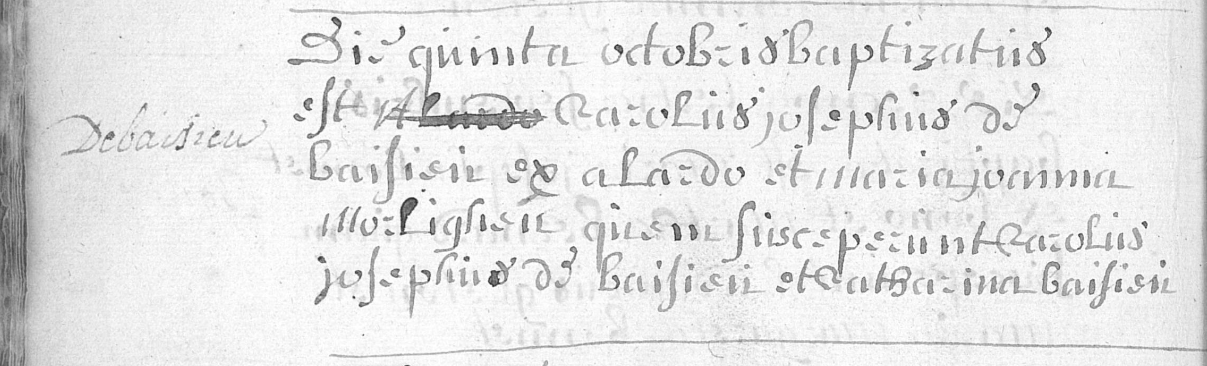 Debaisieu
Die quinta octobris baptizatus
est Alardo Carolus josephus de
baisieu ex alardo et maria joanna
morlighen quem susceperunt Carolus
josephus de baisieu et Catharina baisieu